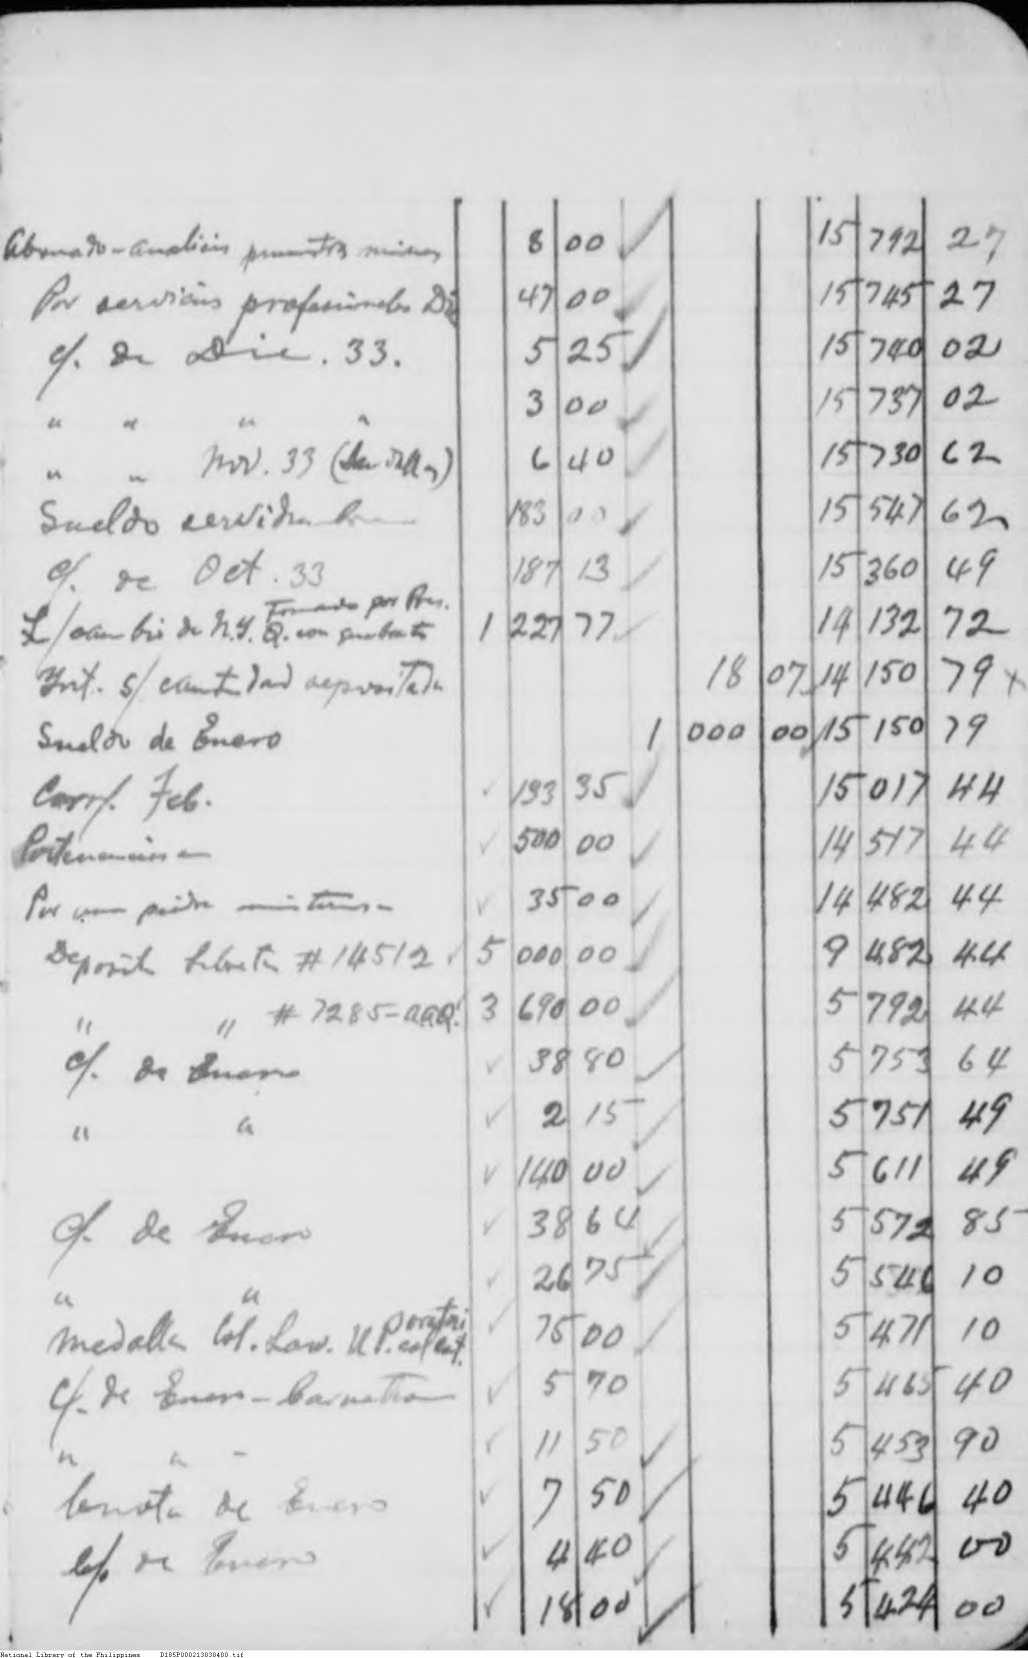 Abonado - analisis minas 8 00 15 792 27
Por servicios profesionales Dic 47 00 15 745 27
c/. de Dic. 33. 5 25 15 740 02
" " " " 3 00 15 737 02
" " Nov. 33 6 40 15 730 62
Sueldo servidumbre 183 00 15 547 62
c/. de Oct. 33 187 13 15 360 49
L/cambio de N.Y. Tomado por Pres. Q. con 1 227 77 14 132 72
Int. s/ cantidad depositada 18 07 14 150 79 x
Sueldo de Enero 1 000 00 15 150 79
Carr/. Feb. 133 35 15 017 44
500 00 14 517 44
Por una piedra 35 00 14 482 44
Deposito Libreta # 14512 5 000 00 9 482 44
" " # 7285-AAQ. 3 690 00 5 792 44
c/. de Enero 38 80 5 753 64
" " 2 15 5 751 49
140 00 5 611 49
c/. de Enero 38 64 5 572 85
" " 26 75 5 546 10
Medalla Col. Law. U.P. 75 00 5 471 10
c/. de Enero - Carnation 5 70 5 465 40
" " - 11 50 5 453 90
Cuota de Enero 7 50 5 446 40
c/. de Enero 4 40 5 442 00
18 00 5 424 00
National Library of the Philippines D185P000213030400.tif